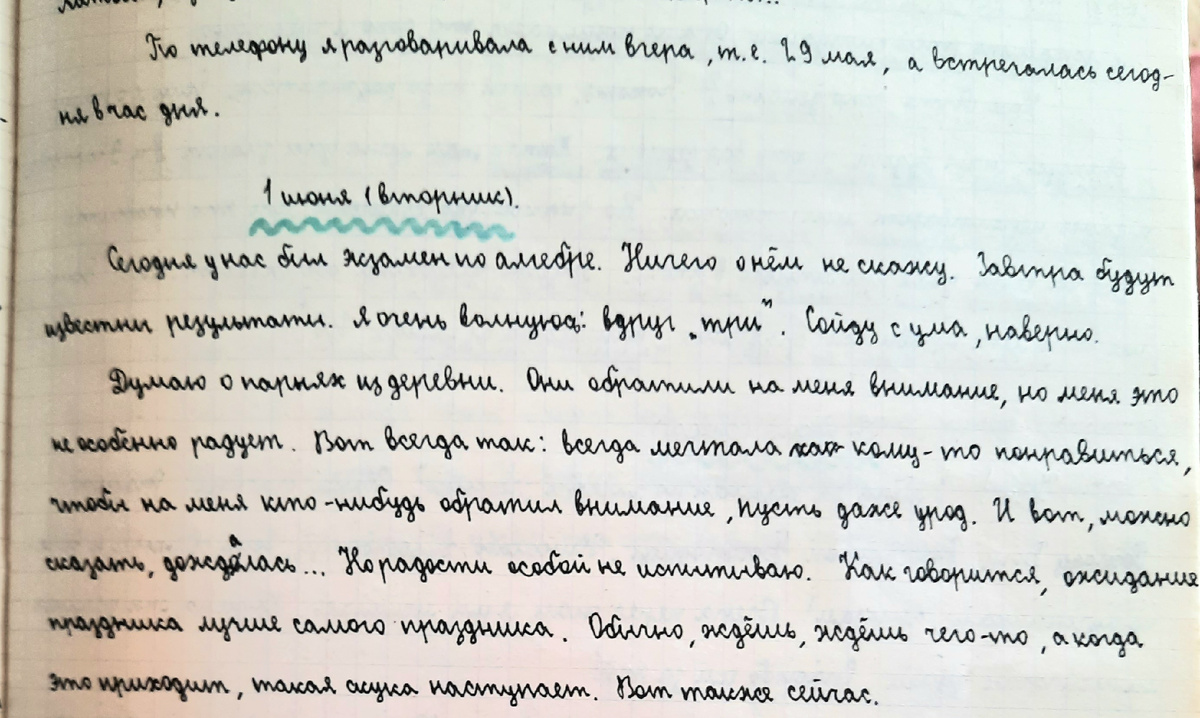 По телефону я разговаривала с ним вчера, т.е. 29 мая, а встречалась сегод-
ня в час дня.
1 июня (вторник).
Сегодня у нас был экзамен по алгебре. Ничего о нём не скажу. Завтра будут
известны результаты. Я очень волнуюсь: вдруг „три". Сойду с ума, наверно.
Думаю о парнях из деревни. Они обратили на меня внимание, но меня это
не особенно радует. Вот всегда так: всегда мечтала кому-то понравиться,
чтобы на меня кто-нибудь обратил внимание, пусть даже урод. И вот, можно
сказать, дождалась... Но радости особой не испытываю. Как говорится, ожидание
праздника лучше самого праздника. Обычно, ждёшь, ждёшь чего-то, а когда
это приходит, такая скука наступает. Вот также сейчас.